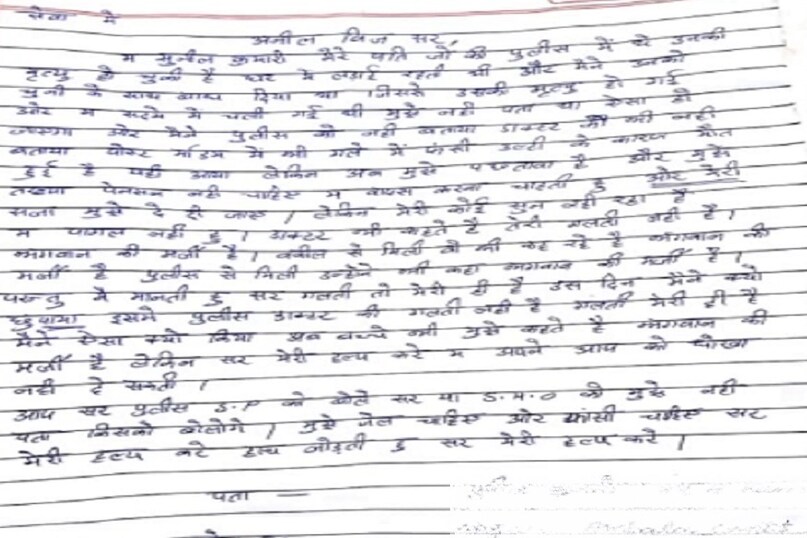 सेवा में
अनील विज सर,
म सुनील कुमारी मेरे पति जो की पुलीस में थे उनकी
मृत्यु हो चुकी है घर मे लड़ाई रहती थी और मैने उनको
चुनी के साथ बांध दिया था जिससे उनकी मृत्यु हो गई
ओर म सदमे में चली गई थी मुझे नही पता था ऐसा हो
जाएगा ओर मैने पुलीस को नही बताया डाक्टर को भी नही
बताया पोस्ट मार्डम में भी गले में फंसी उल्टी के कारण मौत
हुई है यही आया लेकिन अब मुझे पछतावा है और मुझे
तनखा पेनसन नही चाहिए म वापस करना चाहती हु और मेरी
सजा मुझे दे दी जाए / लेकिन मेरी कोई सुन नही रहा है
म पागल नही हु / डाक्टर भी कहते है तेरी गलती नही है /
भगवान की मर्जी है / वकील से मिली वो भी कह रहे है भगवान की
मर्जी है पुलीस से मिली उन्होने भी कहा भगवान की मर्जी है /
परन्तु मै मानती हु सर गलती तो मेरी ही है उस दिन मैने क्यो
छुपाया इसमे पुलीस डाक्टर की गलती नही है गलती मेरी ही है
मैने ऐसा क्यो किया अब बच्चे भी मुझे कहते है भगवान की
मर्जी है लेकिन सर मेरी हल्प करे म अपने आप को धोखा
नही दे सकती /
आप सर पुलीस S.P को बोले सर या S.H.O को मुझे नही
पता किसको बोलोगे / मुझे जेल चाहिए ओर फांसी चाहिए सर
मेरी हल्प करे हाथ जोड़ती हु सर मेरी हल्प करे /
पता —